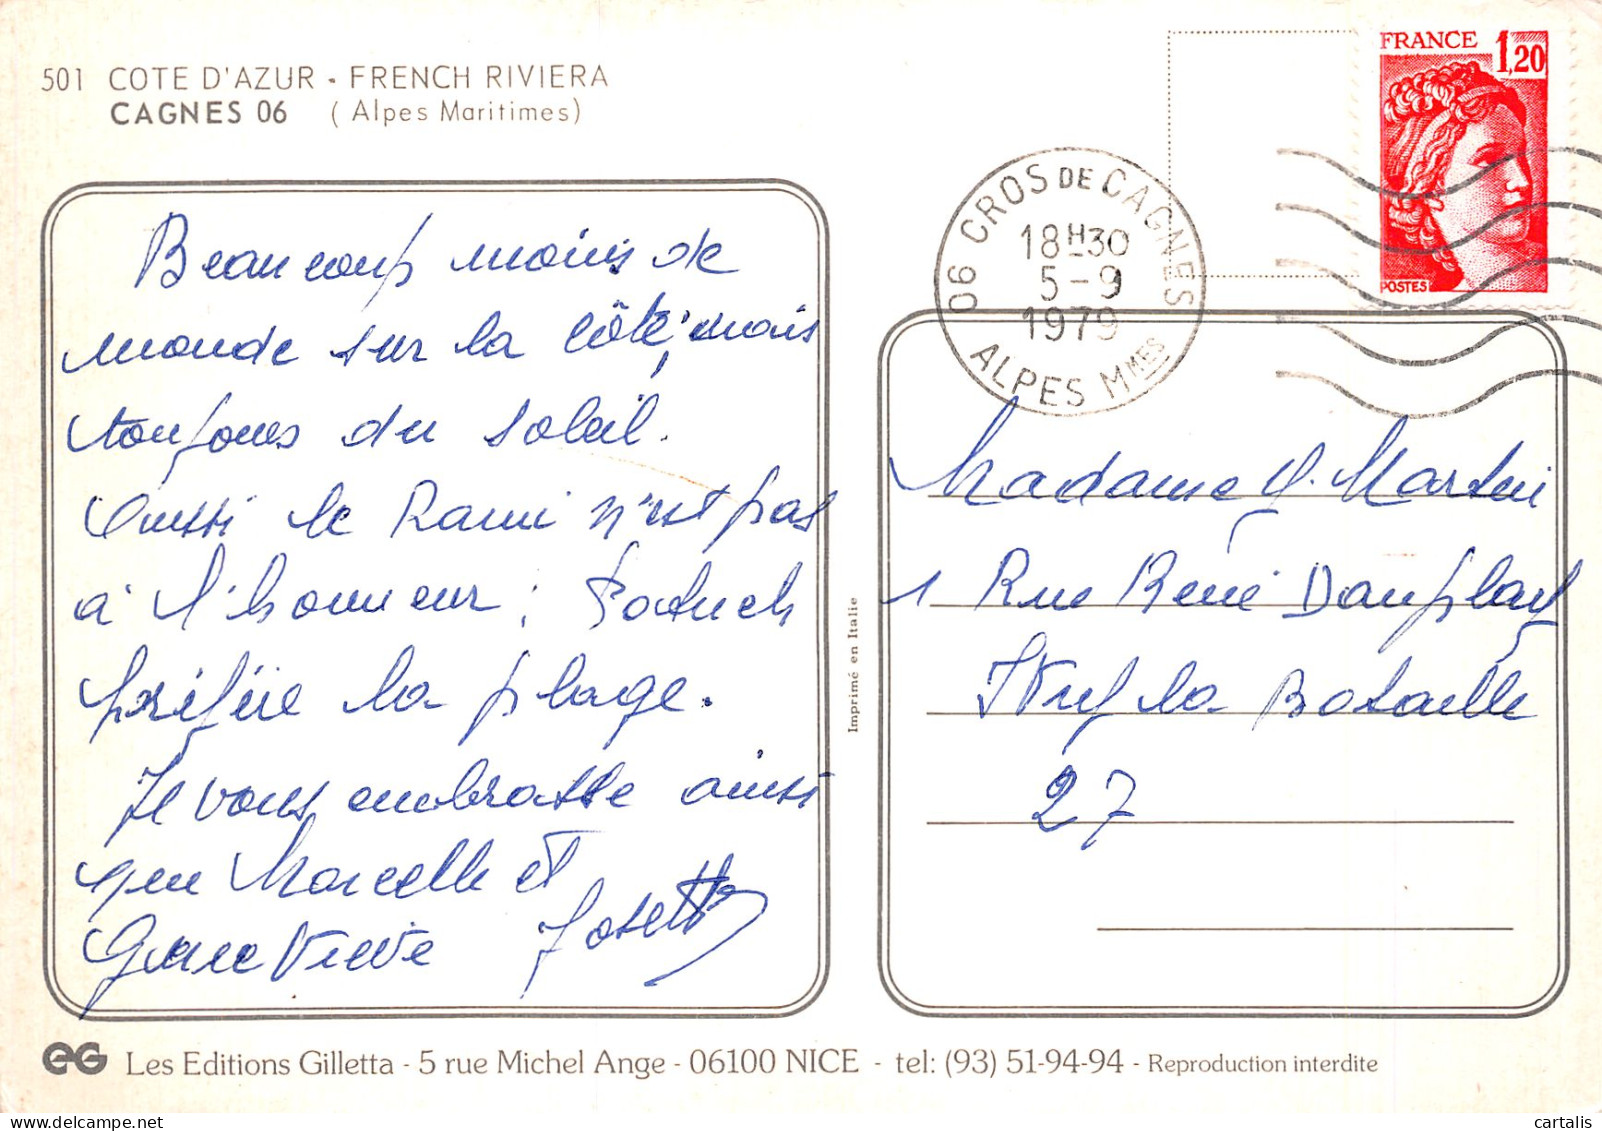 501 COTE D'AZUR - FRENCH RIVIERA
CAGNES 06 (Alpes Maritimes)
FRANCE 1,20
POSTES
06 CROS DE CAGNES
18H30
5-9
1979
ALPES MMES
Beaucoup moins de
monde sur la côte, mais
toujours du soleil.
Aussi le Rami n'est pas
à l'honneur ;
préfère la plage.
Je vous embrasse ainsi
que Marcelle et
Geneviève Josette
Imprimé en Italie
Madame G. Martin
1 Rue René
Ivry la Bataille
27
eG Les Editions Gilletta - 5 rue Michel Ange - 06100 NICE - tel: (93) 51-94-94 - Reproduction interdite
cartalis